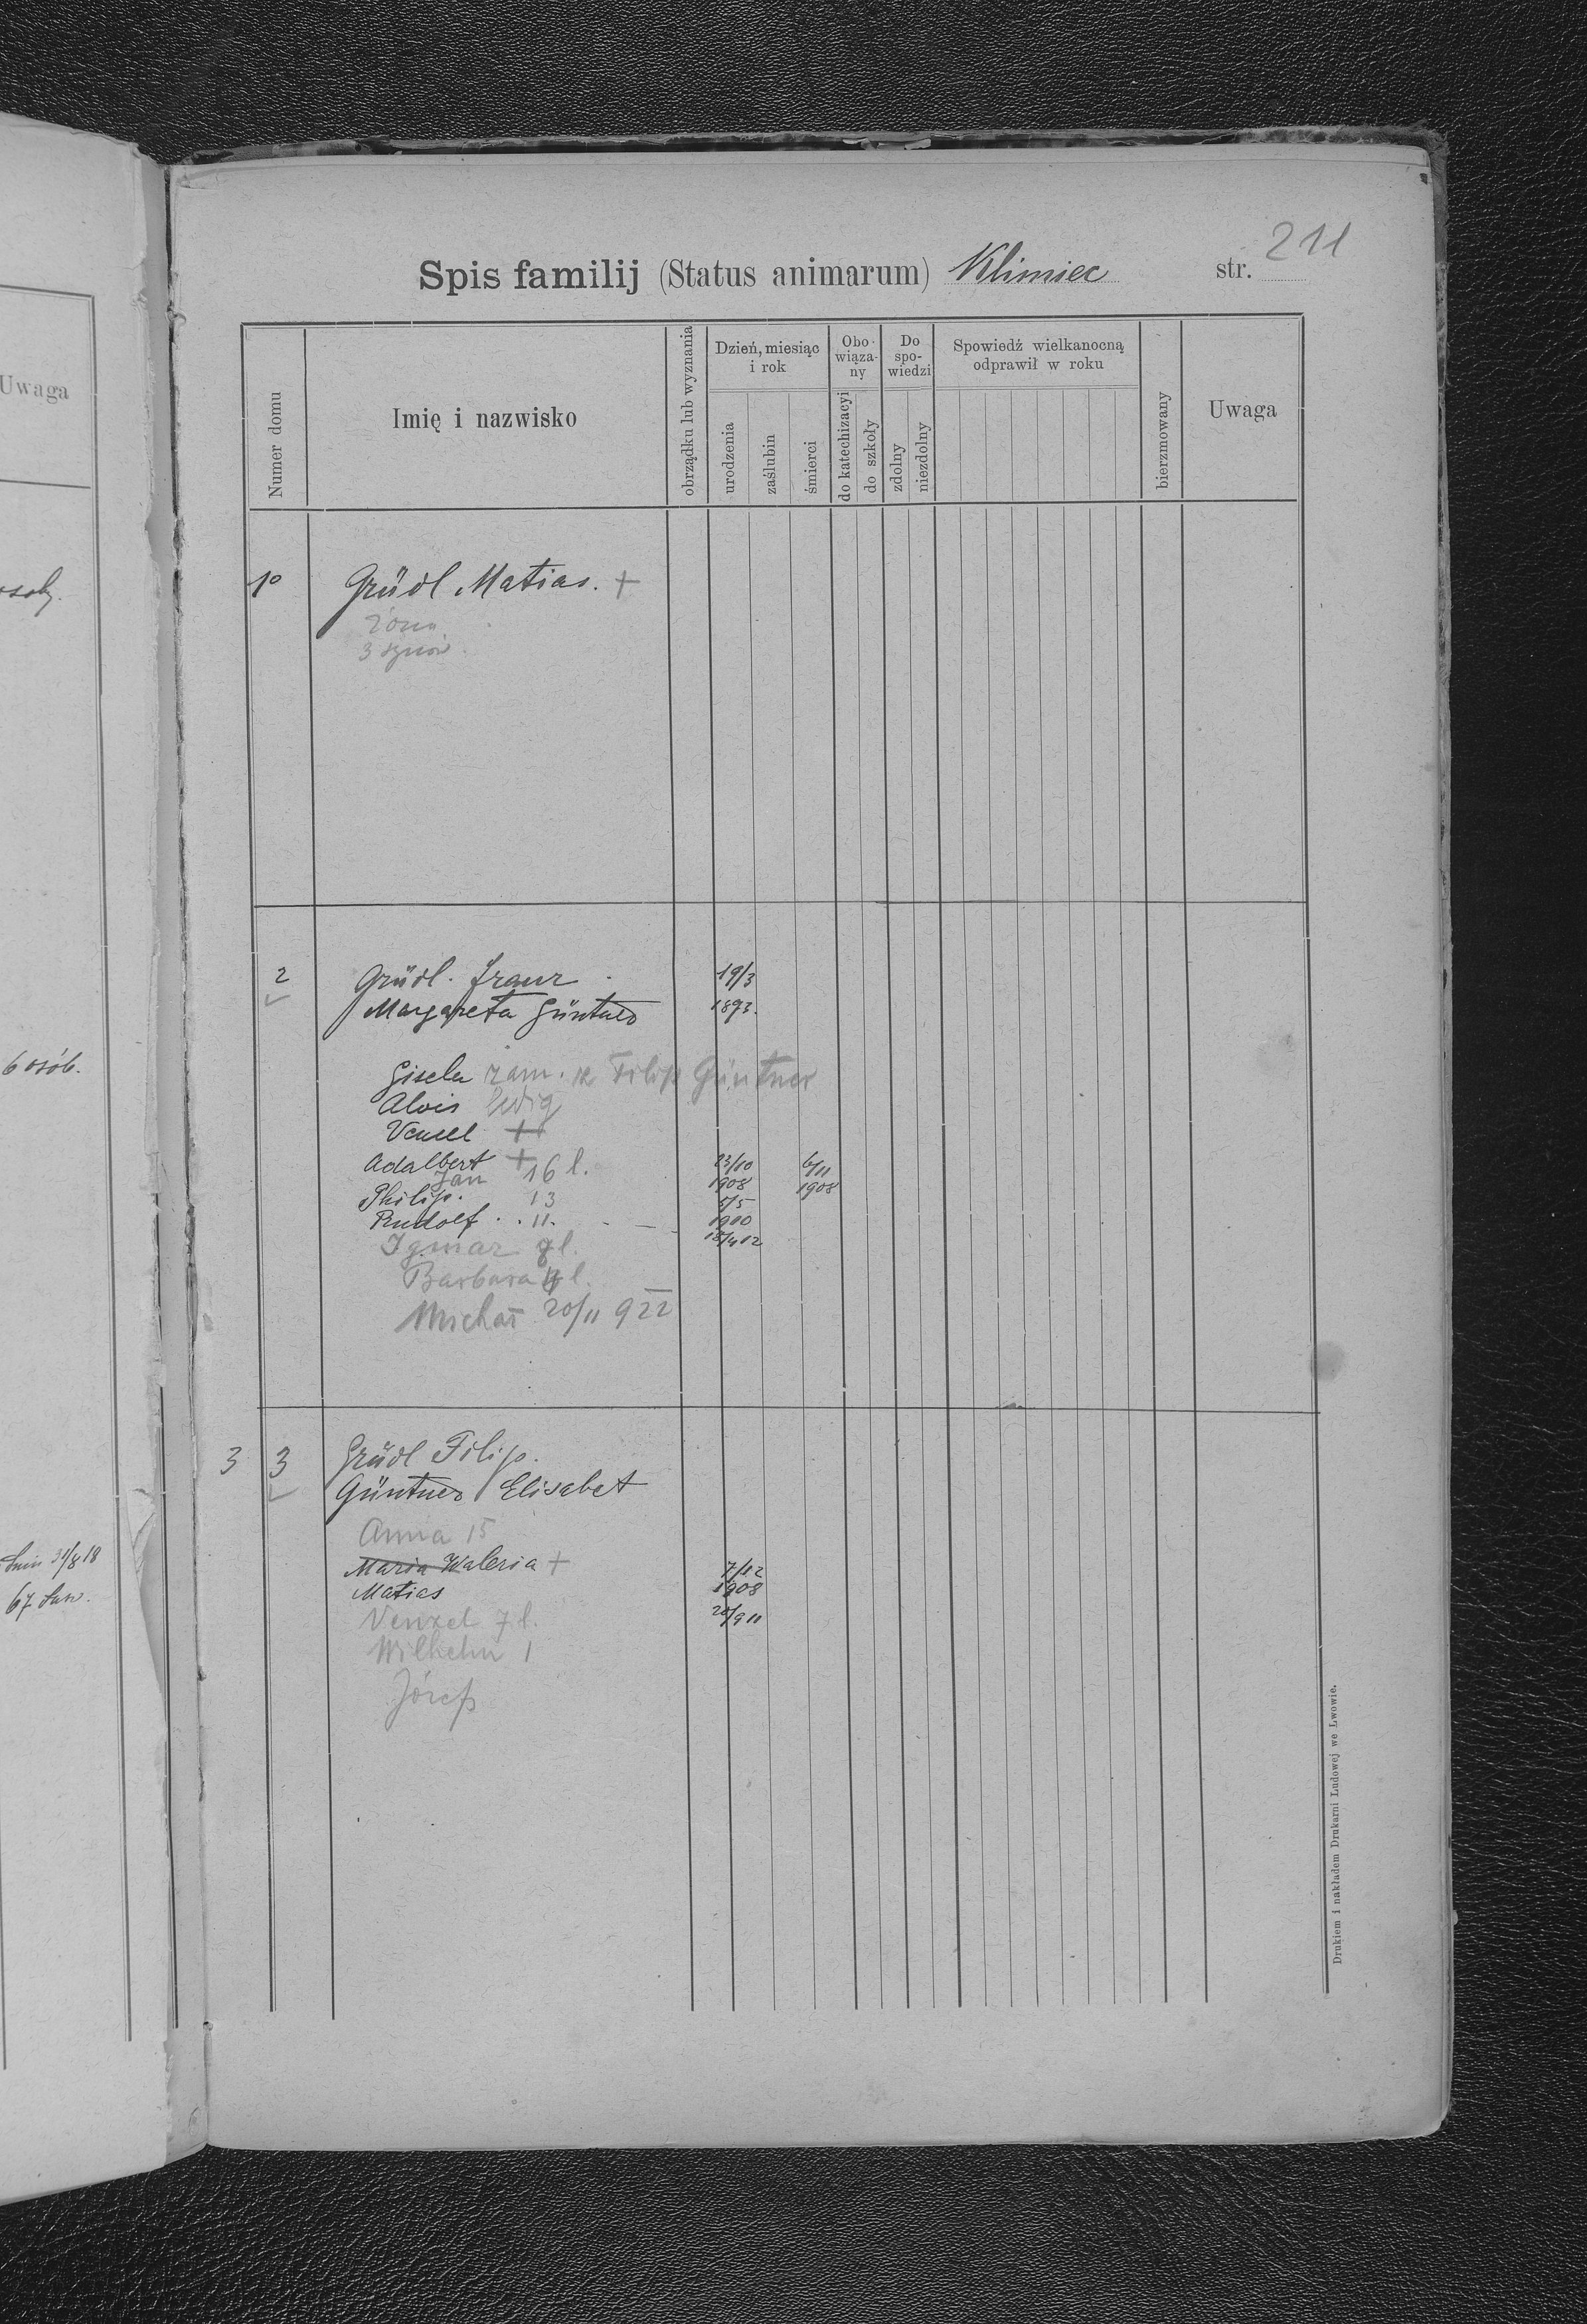 Uwaga
6 osób.
31/8 18
67
211
Spis familij (Status animarum) Klimiec str.
Numer domu
Imię i nazwisko
obrządku lub wyznania
Dzień, miesiąc i rok
urodzenia
zaślubin
śmierci
Obowiązany
do katechizacyi
do szkoły
Do spowiedzi
zdolny
niezdolny
Spowiedź wielkanocną odprawił w roku
bierzmowany
Uwaga
1o Grüdl Matias. +
żona
3 synów
2 Grüdl. Franz 19/3
Margareta Güntner 1893.
Gisela zam. za Filip Güntner
Alois ledig
Vencel +
Adalbert + 23/10 1908 6/11 1908
Jan 16 l.
Philip. 13 5/5 1910
Rudolf . . 11. - - - 18/4 12
Igmar 8 l.
Barbara l.
Michał 20/11 922
3 3 Grüdl Filip.
Güntner Elisabet
Anna 15
Maria Waleria + 7/12 1908
Matias 20/9 11
Venzel 7 l.
Wilhelm 1
Józef
Drukiem i nakładem Drukarni Ludowej we Lwowie.